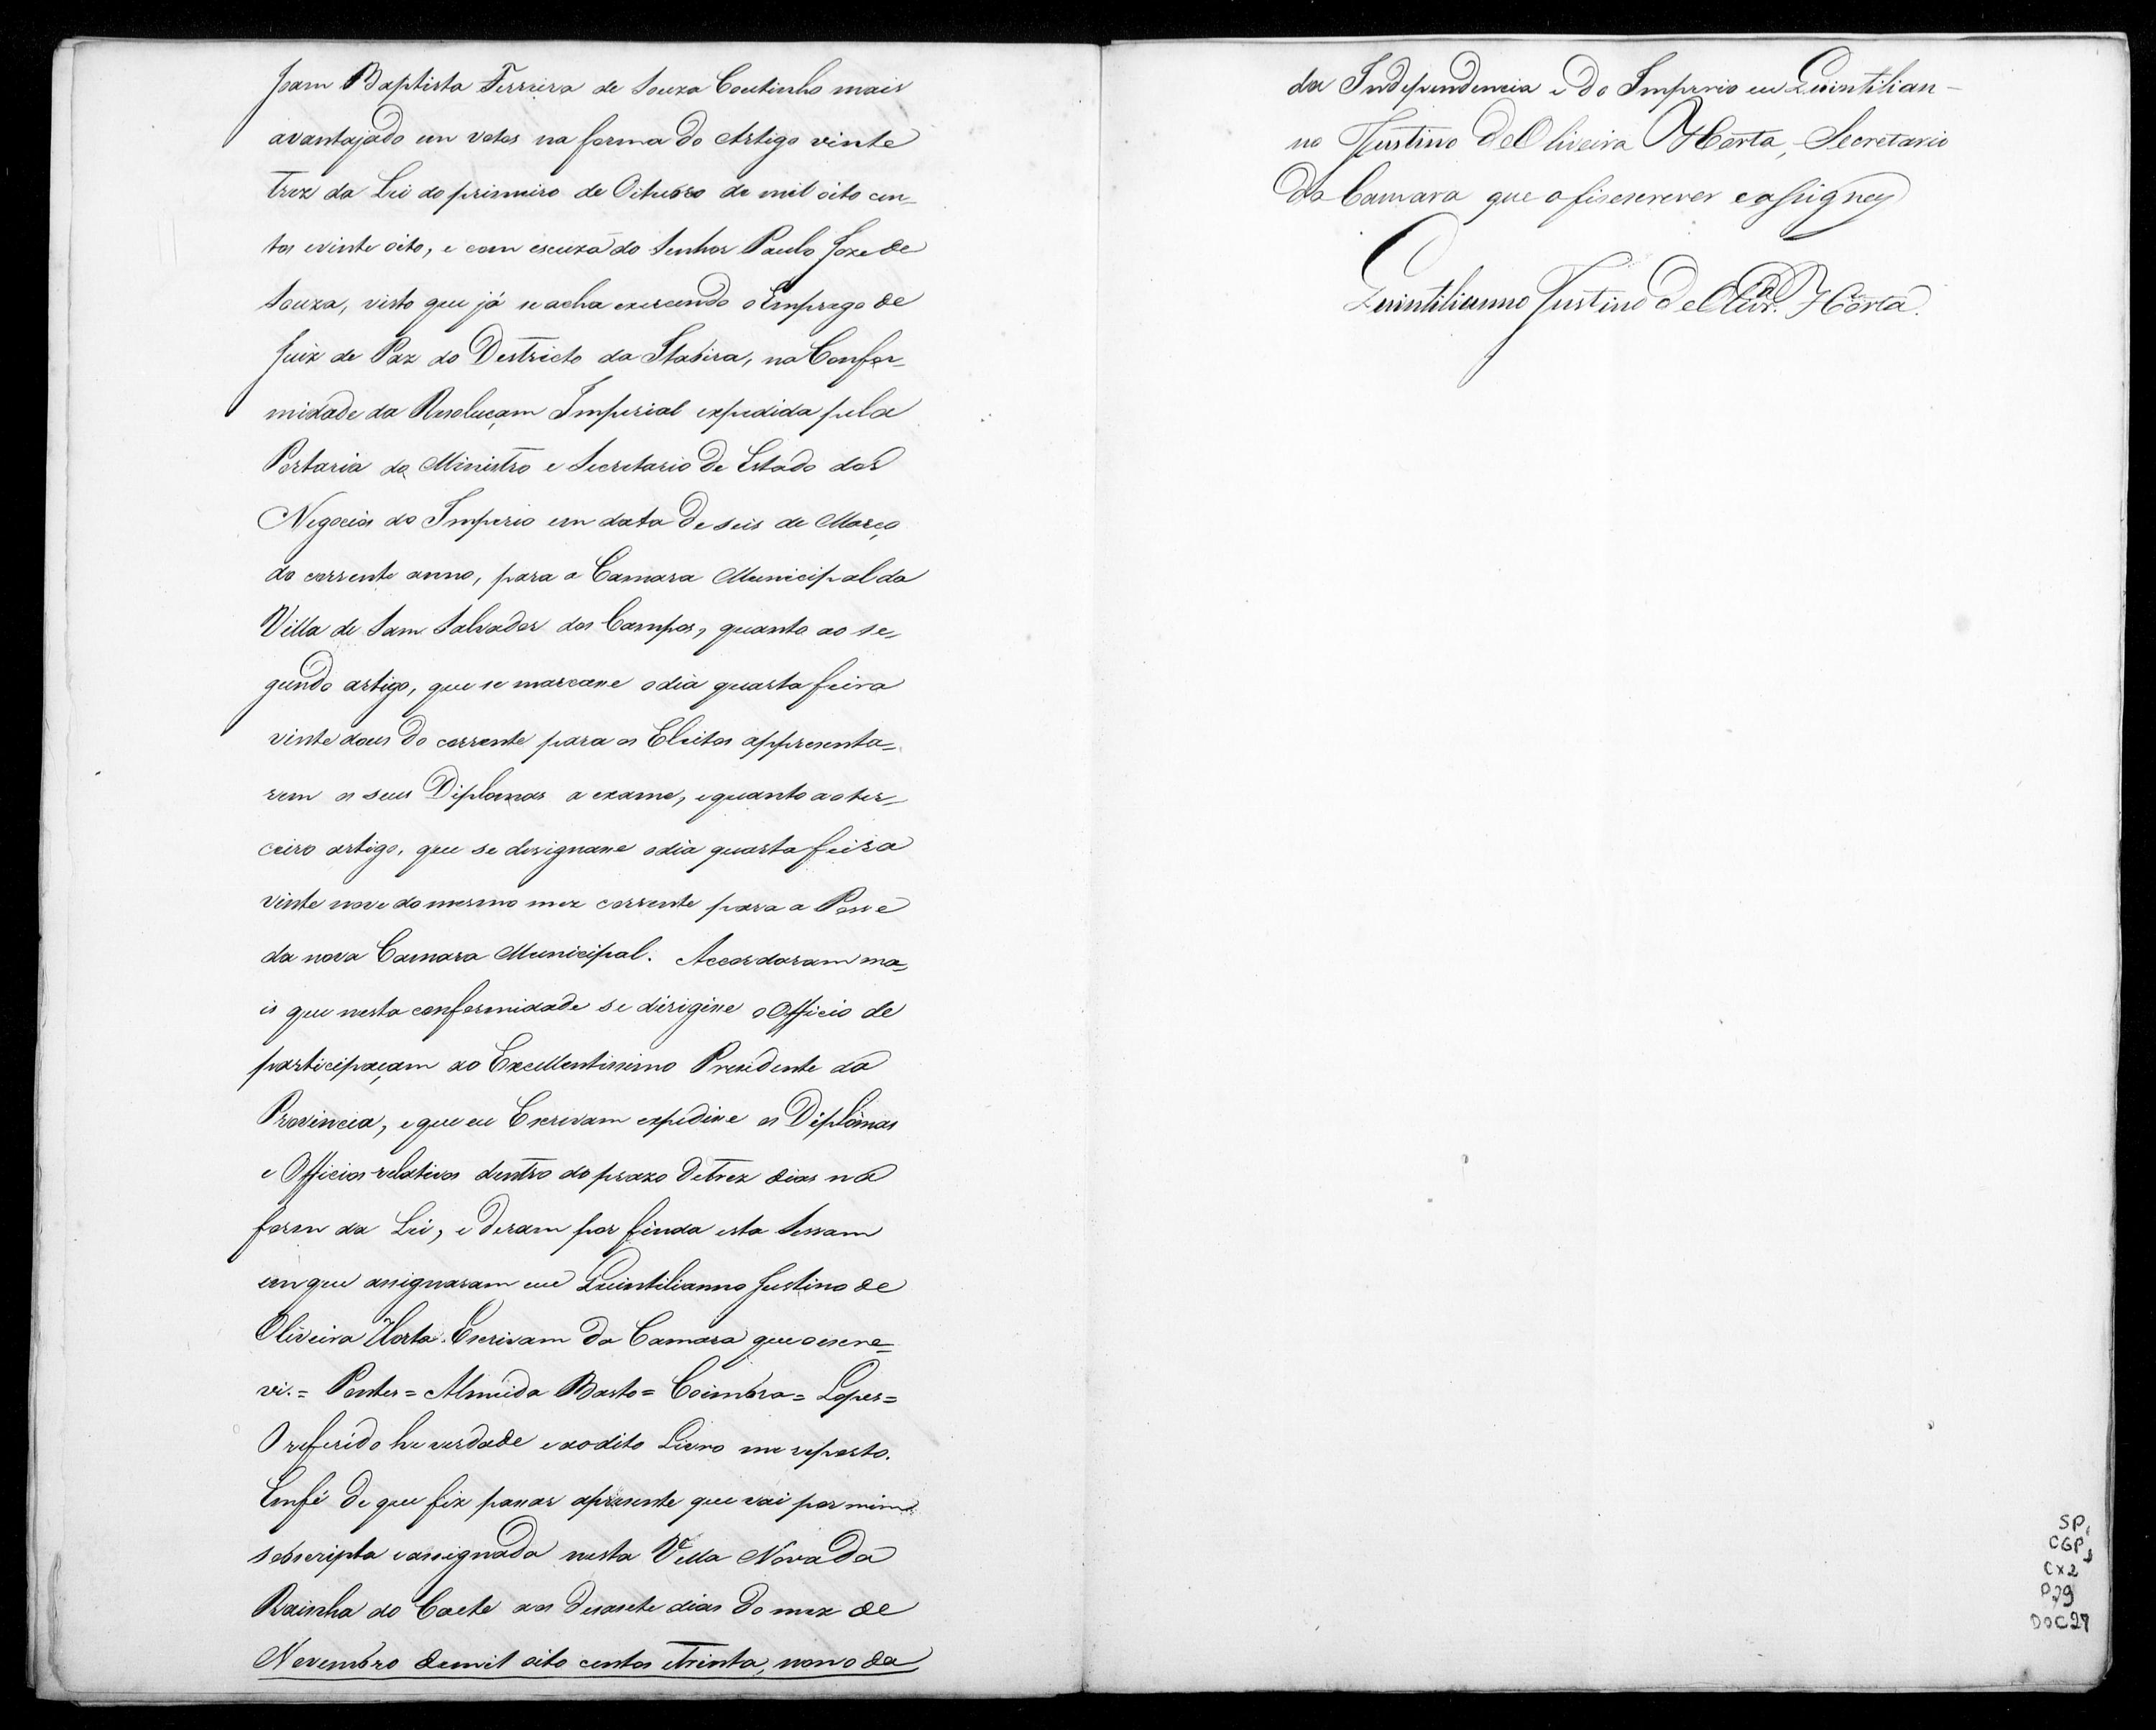 Joam Baptista Ferreira de Souza Coutinho mais
avantajado em votos na forma do Artigo vinte
trez da Lei do primeiro de Oitubro de mil oito cen-
tos evinte oito, e com escuza do Senhor Paulo Joze de
Souza, visto que já se acha exercendo o Emprego de
Juiz de Paz do Destricto da Itabira, na Confor-
midade da Resoluçam Imperial expedida pela
Portaria do Ministro e Secretario de Estado dos
Negocios do Imperio em data de seis de Março
do corrente anno, para a Camara Municipal da
Villa de Sam Salvador dos Campos, quanto ao se-
gundo artigo, que se marcasse odia quarta feira
vinte dous do corrente para os Eleitos appresenta-
rem os seus Diplomas a exame, equanto aoter-
ceiro artigo, que se designasse odia quarta feira
vinte nove domesmo mez corrente para a Posse
da nova Camara Municipal. Accordaram ma-
is que nesta conformidade se dirigisse o Officio de
participaçam ao Excellentissimo Presidente da
Provincia, eque eu Escrivam expedisse os Diplomas
e Officios relativos dentro do prazo detrez dias na
form da Lei, e deram por finda esta Sessam
em que assignaram eu Quintilianno Justino de
Oliveira Horta. Escrivam da Camara que oescre-
vi. = Pontes = Almeida Basto = Coimbra = Lopes =
O referido he verdade e aodito Livro me reporto.
Emfé de que fiz passar apresente que vai por mim
sobscripta eassignada nesta Villa Nova da
Rainha do Caete aos desasete dias do mez de
Novembro demil oito centos etrinta, nono da
da Independencia e do Imperio eu Quintilian-
no Justino de Oliveira Horta, Secretario
da Camara que o fisescrever eassigney
Quintilianno Justino de Olivr.ª Horta.
SP,
CGP 1
CX2
P,29
DOC27